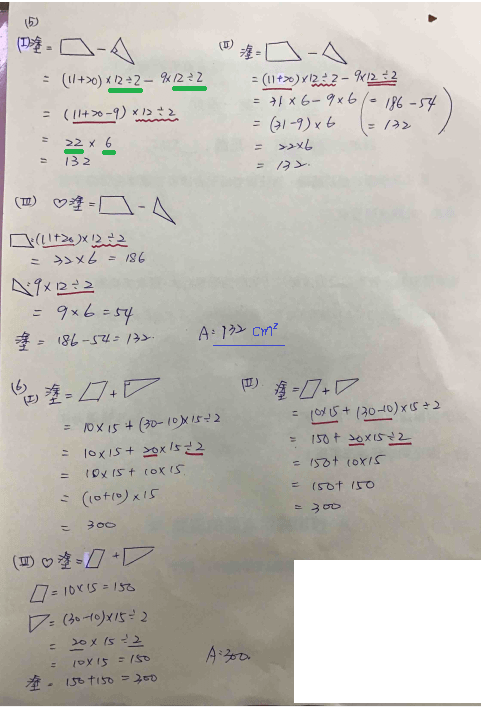 (5)
(I) 塗 = -
= (11+20)×12÷2 - 9×12÷2
= (11+20-9)×12÷2
= 22 × 6
= 132
(II) 塗 = -
= (11+20)×12÷2 - 9×12÷2
= 31×6-9×6 (= 186-54
= (31-9)×6 = 132)
= 22×6
= 132.
(III) ♡塗 = -
:(11+20)×12÷2
= 32×6 = 186
:9×12÷2
= 9×6 = 54
塗 = 186-54=132. A:132 cm²
(6)
(I) 塗 = +
= 10×15+(30-10)×15÷2
= 10×15+20×15÷2
= 10×15+10×15
= (10+10)×15
= 300
(II) 塗 = +
= 10×15+(30-10)×15÷2
= 150+20×15÷2
= 150+10×15
= 150+150
= 300
(III) ♡塗 = +
= 10×15=150
= (30-10)×15÷2
= 20×15÷2
= 10×15=150
塗 = 150+150=300 A:300.